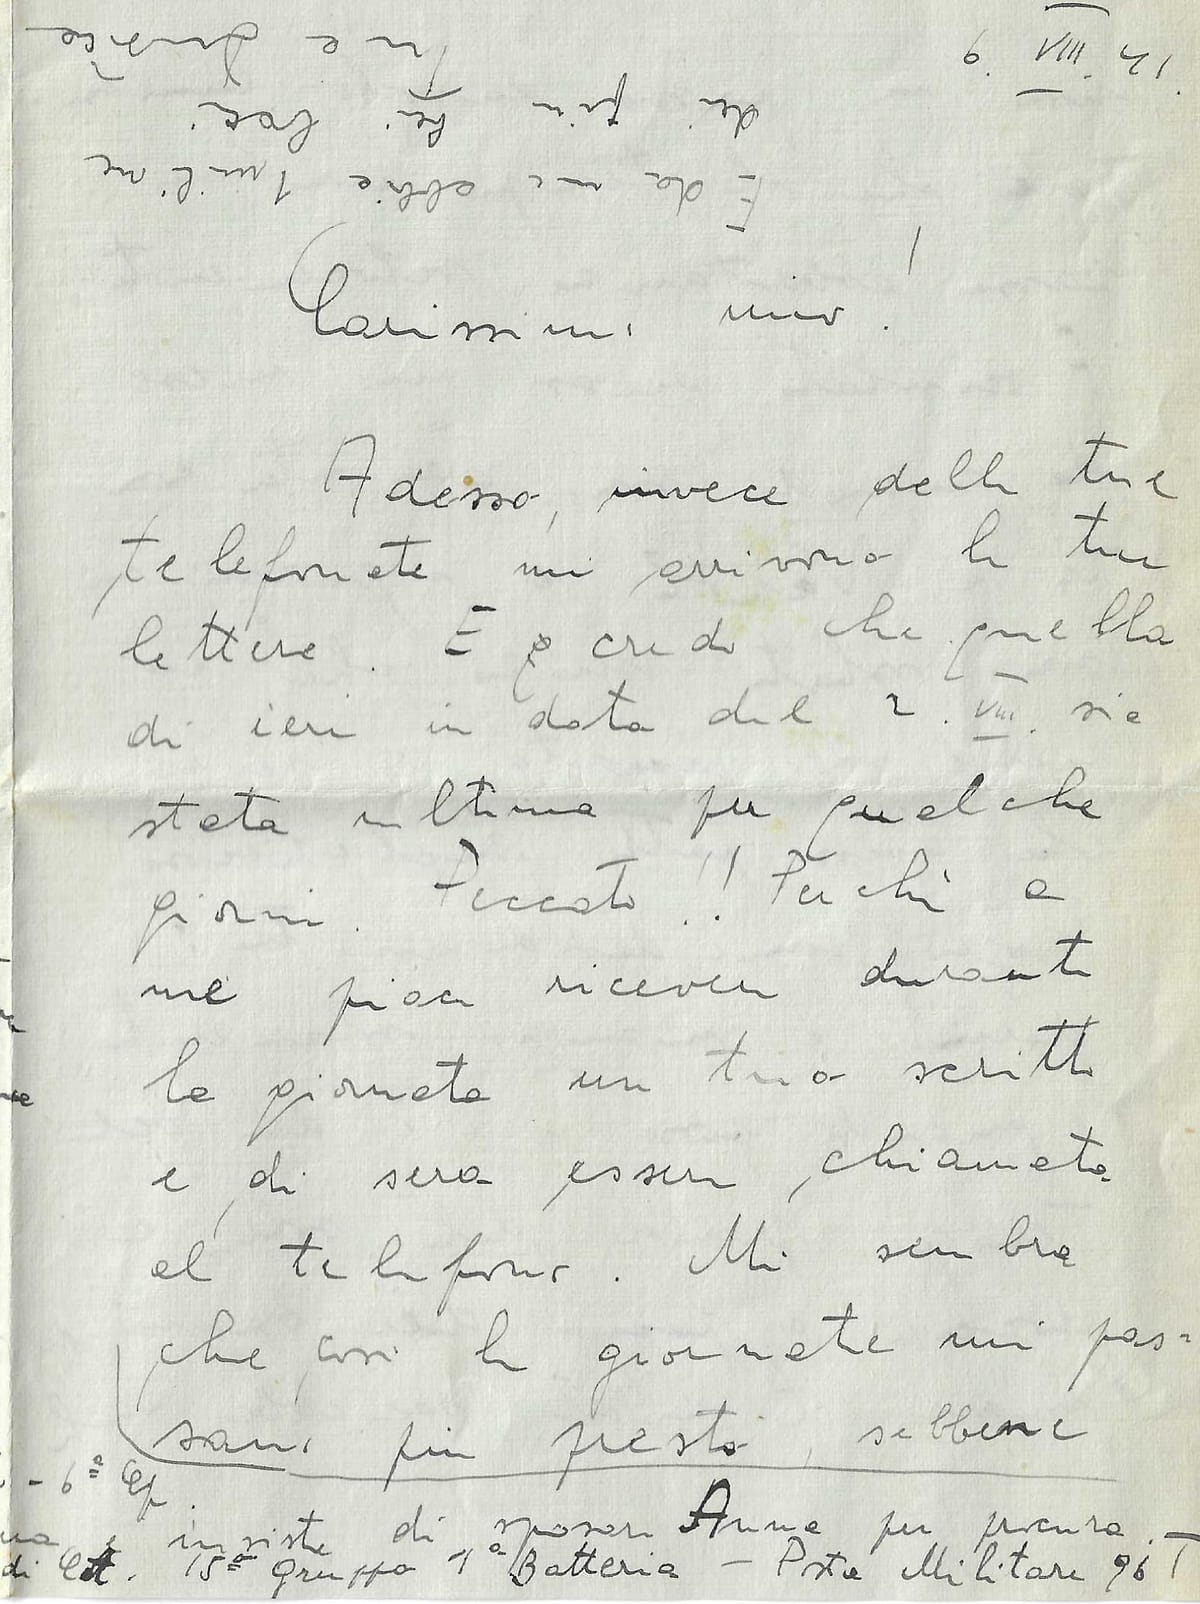 12. VIII. 9.
Carissimo mio!
Adesso, invece delle tue
telefonate mi arrivono le tue
lettere. E credo che quella
di ieri in data del 2. VIII. sia
stata ultima per qualche
giorni. Peccato!! Perchè a
me piace ricevere durante
la giornata un tuo scritto
e di sera essere chiamata
al telefono. Mi sembra
che così le giornate mi pas=
sano più presto, sebbene
- 6ª Cp
insiste di sposare Anna per procura.
di 15º Gruppo 1ª Batteria - Posta Militare 96
E da me abbie 1 milione
dei più bei baci
Tua